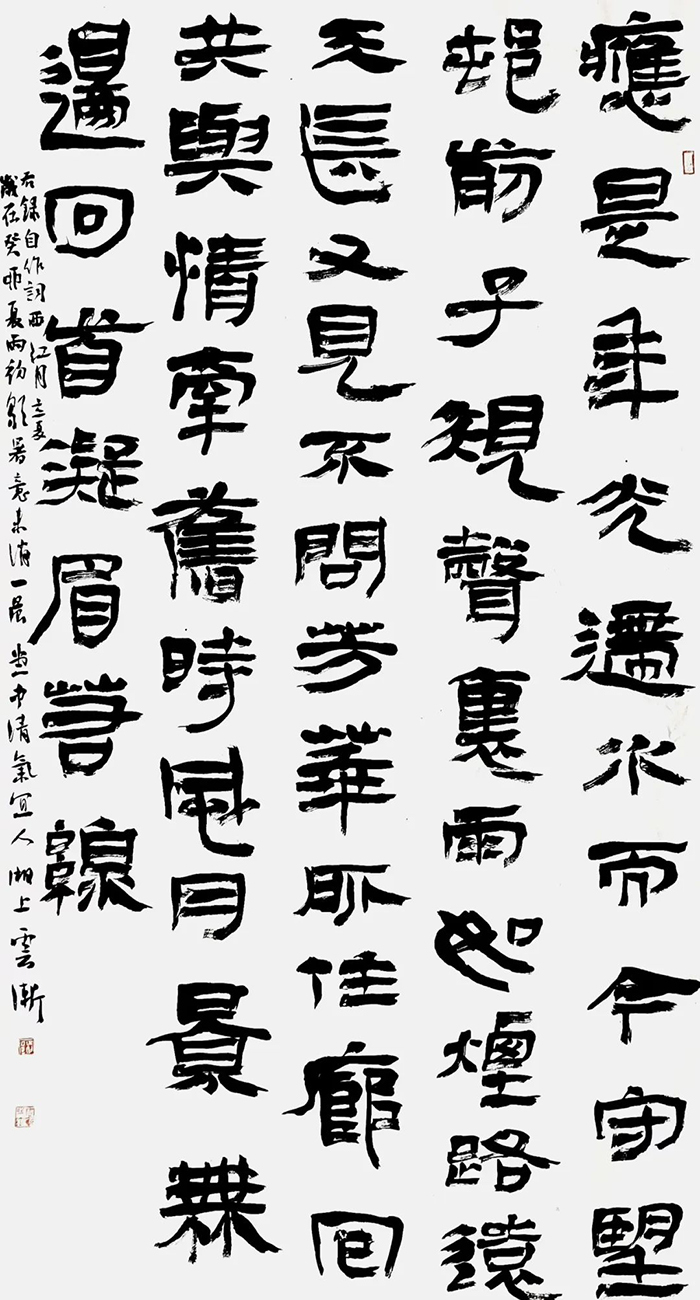 應是年光水而今守望
邨前子規聲裏雨如煙路遠
天長又見不問芳華住廊回
共與情牽舊時風月景無
邊回首凝眉
右錄自作詞西江月立夏
歲在癸卯夏雨初歇暑意未消一晨中清氣宜人湘上雲漸